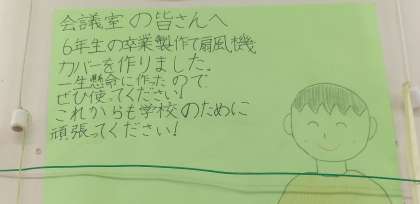 会議室の皆さんへ
6年生の卒業製作で扇風機
カバーを作りました。
一生懸命に作ったので
ぜひ使ってください!
これからも学校のために
頑張ってください!